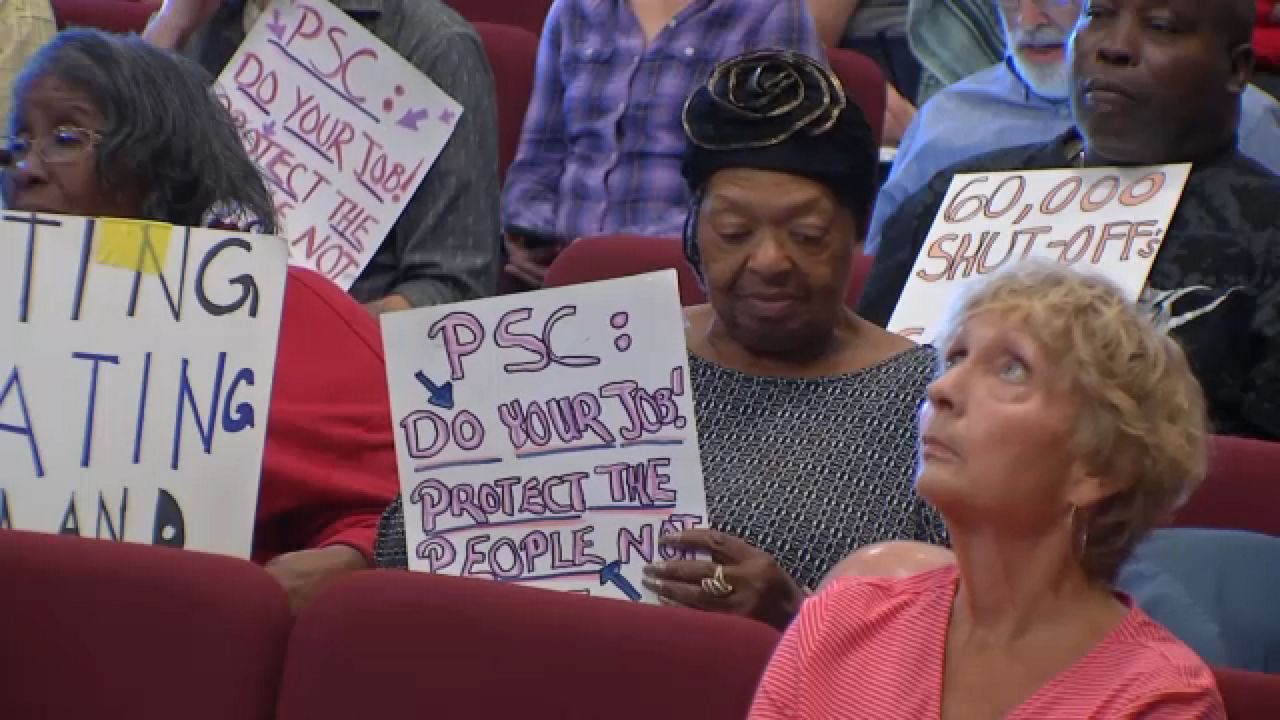 PSC:
DO YOUR JOB!
PROTECT THE
NOT
TING
ATING
AND
PSC:
DO YOUR JOB!
PROTECT THE
PEOPLE NOT
60,000
SHUT-OFFS